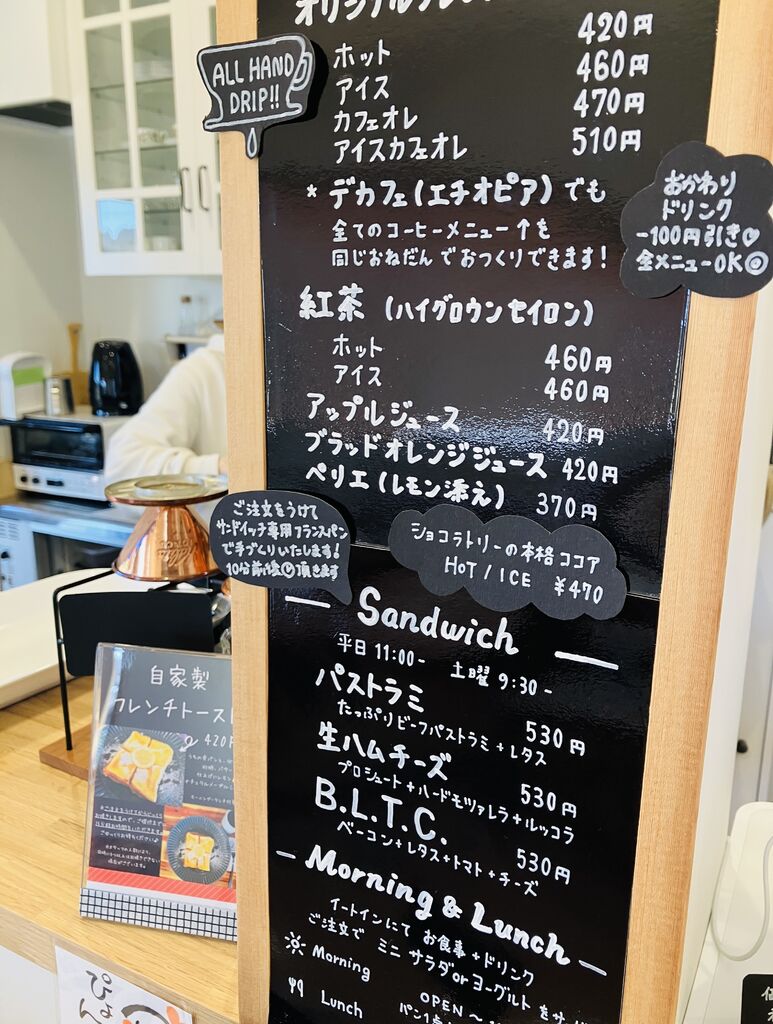 420円
ホット 460円
アイス 470円
カフェオレ 510円
アイスカフェオレ
ALL HAND
DRIP!!
* デカフェ(エチオピア)でも
全てのコーヒーメニュー↑を
同じおねだんでおつくりできます!
おかわり
ドリンク
-100円引き♡
全メニューOK◎
紅茶 (ハイグロウンセイロン)
ホット 460円
アイス 460円
アップルジュース 420円
ブラッドオレンジジュース 420円
ペリエ(レモン添え) 370円
ご注文をうけて
サンドイッチ専用フランスパン
で手づくりいたします!
10分前後頂きます
ショコラトリーの本格ココア
HOT / ICE ¥470
Sandwich
平日 11:00- 土曜 9:30-
パストラミ 530円
たっぷりビーフパストラミ+レタス
生ハムチーズ 530円
プロシュート+ハードモツァレラ+ルッコラ
B.L.T.C. 530円
ベーコン+レタス+トマト+チーズ
Morning & Lunch
イートインにて お食事+ドリンク
ご注文で ミニ サラダorヨーグルト をサ
Morning OPEN ~
Lunch パン1
自家製
フレンチトースト
420
ぴょん